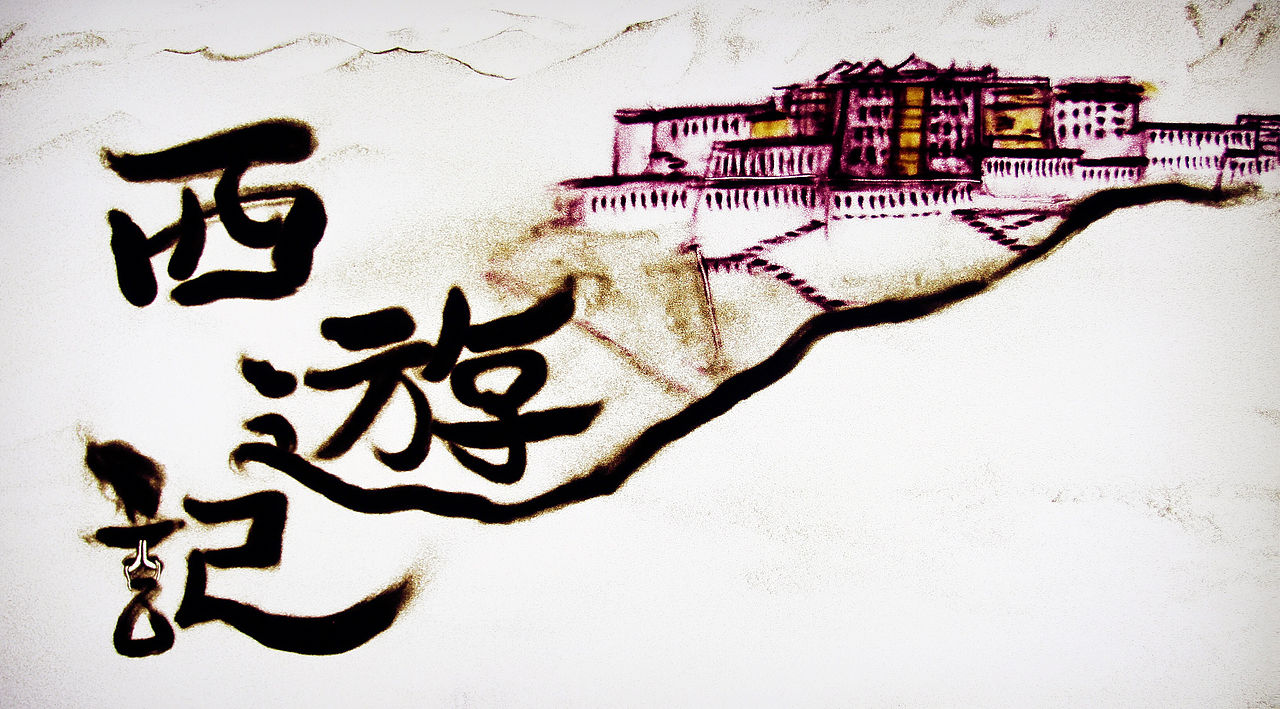 西遊記